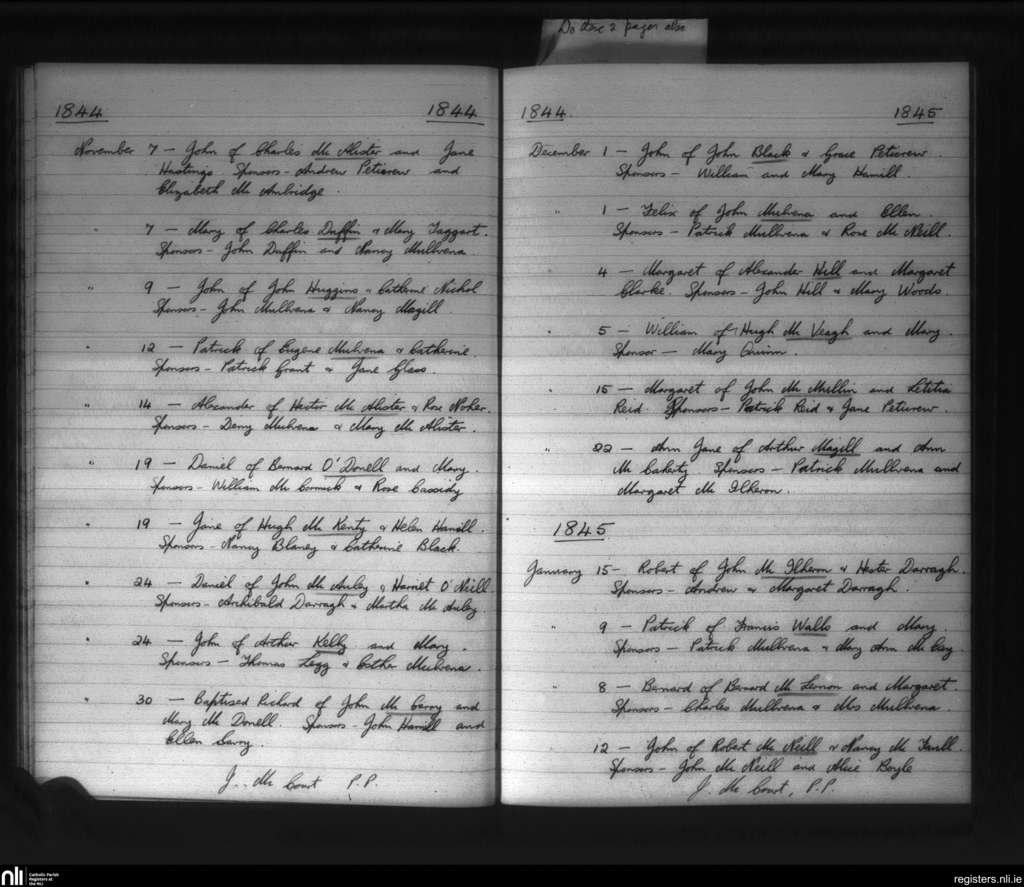 Do these 2 pages also
1844
1844
November 7 - John of Charles Mc Alister and Jane
Hastings Sponsors - Andrew Peticrew and
Elizabeth Mc Ambridge.
" 7 - Mary of Charles Duffin & Mary Taggart.
Sponsors - John Duffin and Nancy Mulvena.
" 9 - John of John Huggins & Catherine Nichol
Sponsors - John Mulvena & Nancy Magill.
" 12 - Patrick of Eugene Mulvena & Catherine.
Sponsors - Patrick Grant & Jane Glass.
" 14 - Alexander of Hester Mc Alister & Rose
Sponsors - Deny Mulvena & Mary Mc Alister.
" 19 - Daniel of Bernard O'Donell and Mary.
Sponsors - William Mc Cormick & Rose Cassidy
" 19 - Jane of Hugh Mc Kenty & Helen Hamill.
Sponsors - Nancy Blaney & Catherine Black.
" 24 - Daniel of John Mc Auley & Harriet O'Neill
Sponsors - Archibald Darragh & Martha Mc Auley
" 24 - John of Arthur Kelly and Mary.
Sponsors - Thomas Legg & Esther Mulvena.
" 30 - Baptised Richard of John Mc Garry and
Mary Mc Donell. Sponsors - John Hamill and
Ellen
J. Mc Court P.P.
1844
1845
December 1 - John of John Black & Grace Peticrew.
Sponsors - William and Mary Hamill.
" 1 - Felix of John Mulvena and Ellen.
Sponsors - Patrick Mullvena & Rose Mc Neill.
" 4 - Margaret of Alexander Hill and Margaret
Clarke. Sponsors - John Hill & Mary Woods.
" 5 - William of Hugh Mc Veagh and Mary.
Sponsor - Mary Quinn.
" 15 - Margaret of John Mc Mullin and Letitia
Reid. Sponsors - Patrick Reid & Jane Peticrew.
" 22 - Ann Jane of Arthur Magill and Ann
Mc Caherty. Sponsors - Patrick Mullvena and
Margaret Mc Ilheron.
1845
January 15 - Robert of John Mc Ilheron & Hester Darragh.
Sponsors - Andrew & Margaret Darragh.
" 9 - Patrick of Francis Walls and Mary.
Sponsors - Patrick Mullvena & Mary Ann Mc Cay.
" 8 - Bernard of Bernard Mc Lernon and Margaret.
Sponsors - Charles Mullvena & Mrs Mulvena.
" 12 - John of Robert Mc Neill & Nancy Mc Faull.
Sponsors - John Mc Neill and Alice Boyle
J. Mc Court, P.P.
nli
Catholic Parish
Registers at
the NLI
registers.nli.ie